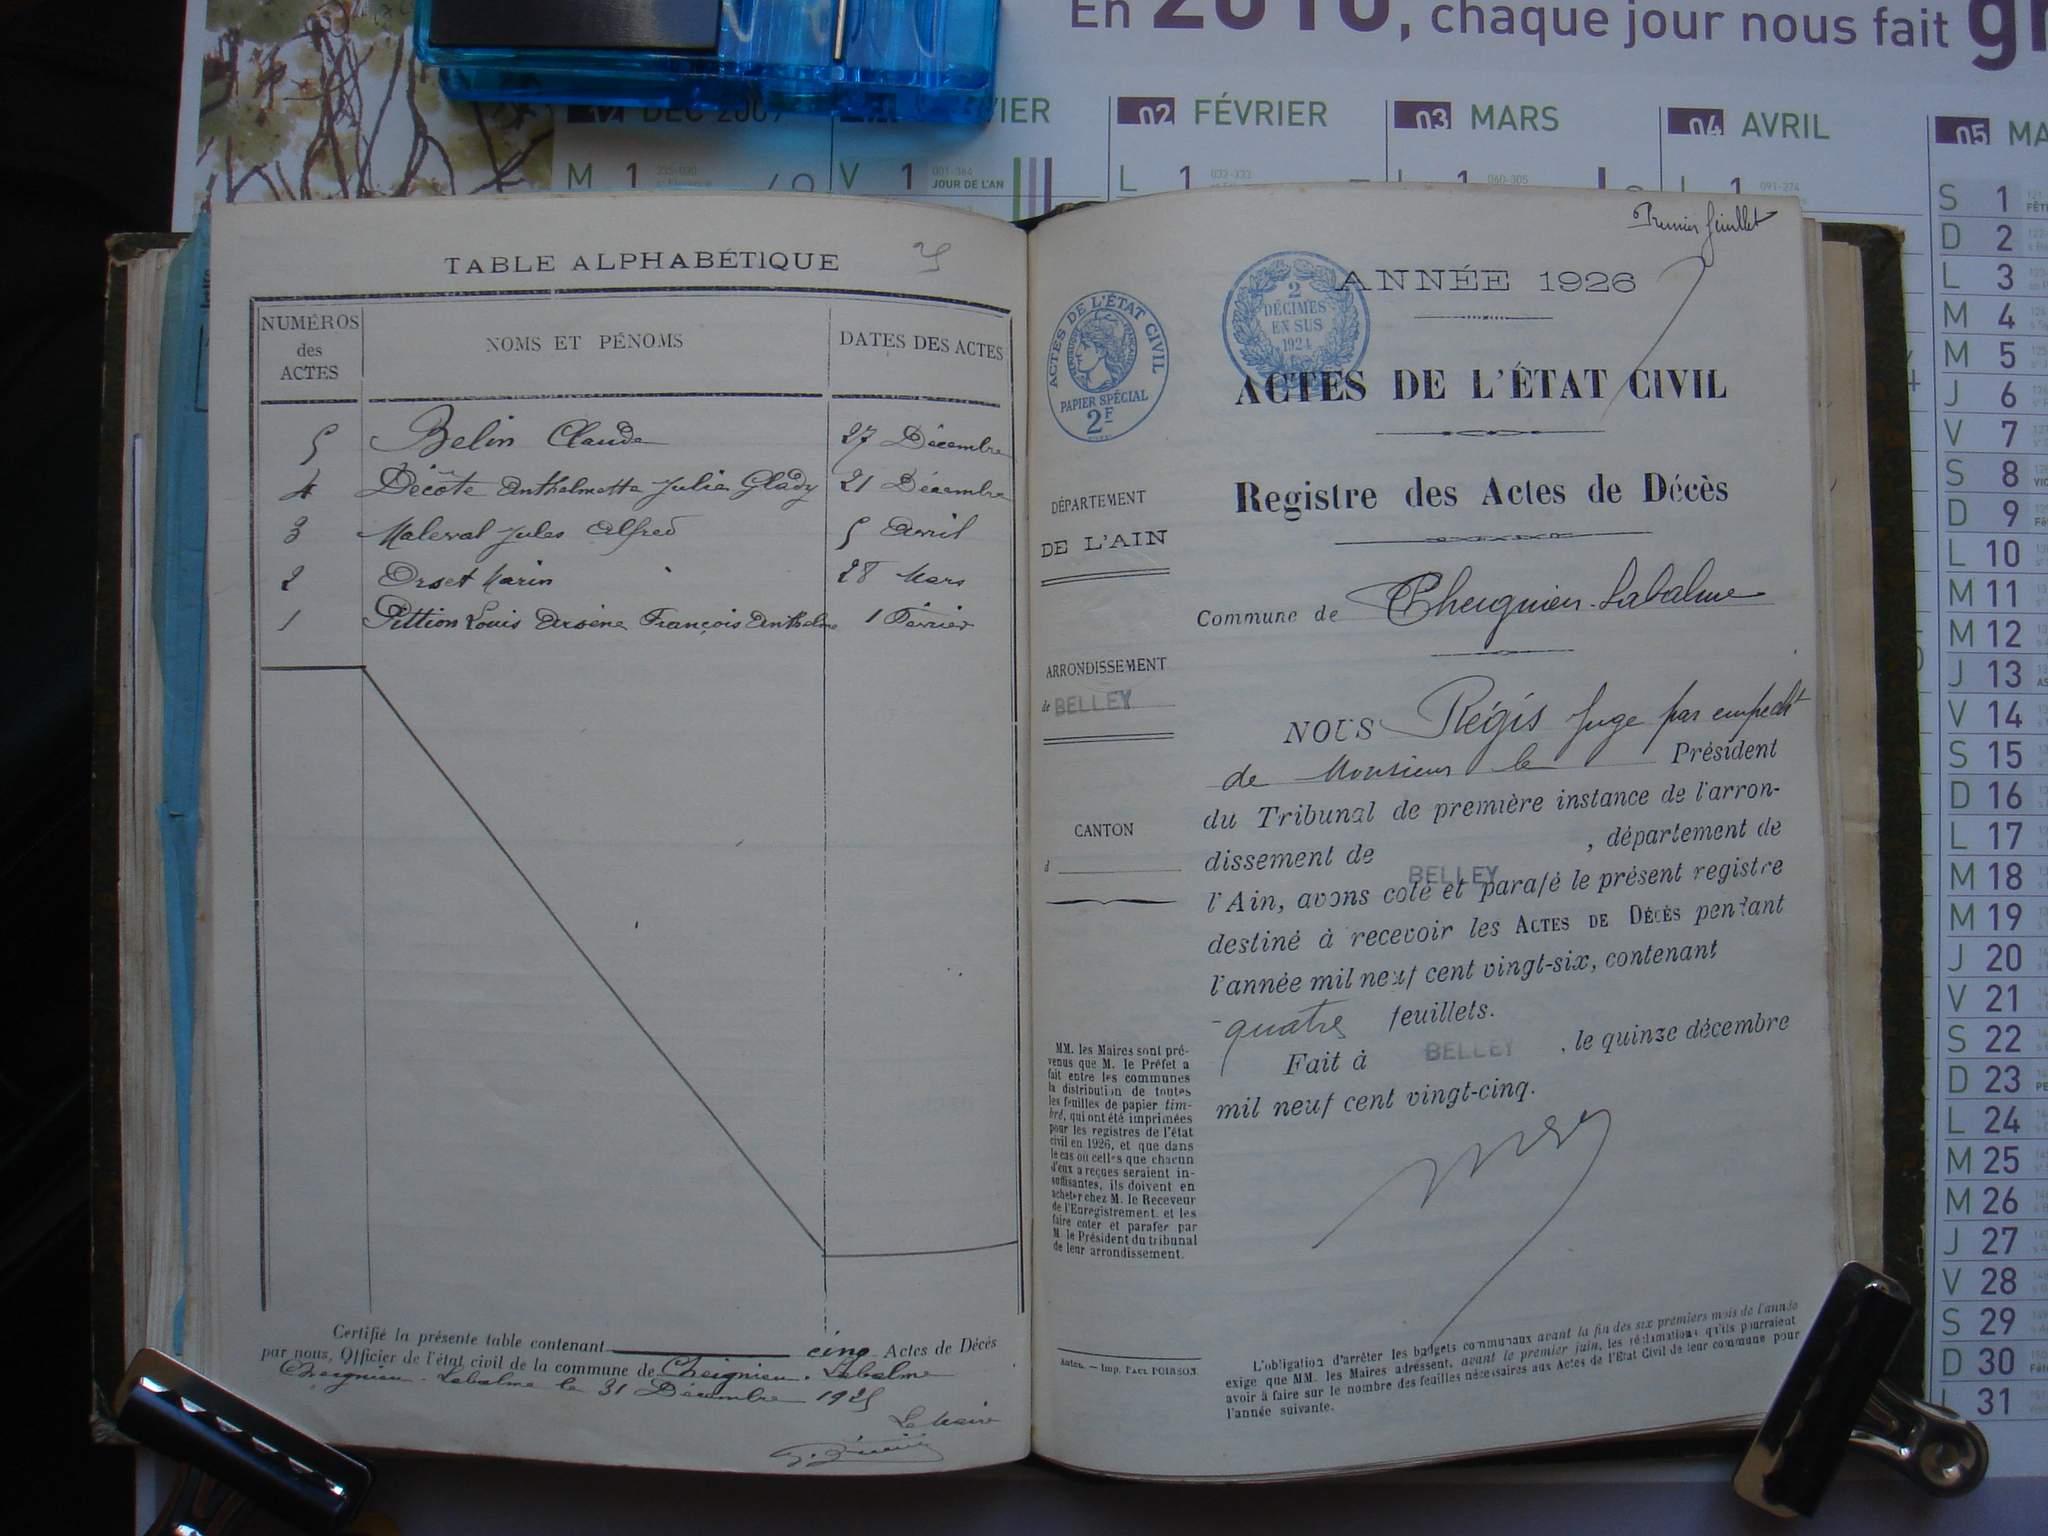 En 2010, chaque jour nous fait
DÉC 2009
02 FÉVRIER
03 MARS
04 AVRIL
05 MA
M 1
V 1 001-364
JOUR DE L'AN
L 1 032-333
L 1 060-305
L 1 091-274
S 1
D 2
L 3
M 4
M 5
J 6
V 7
S 8
D 9
L 10
M 11
M 12
J 13
V 14
S 15
D 16
L 17
M 18
M 19
J 20
V 21
S 22
D 23
L 24
M 25
M 26
J 27
V 28
S 29
D 30
L 31
TABLE ALPHABÉTIQUE
NUMÉROS des ACTES
NOMS ET PÉNOMS
DATES DES ACTES
5 Belin Claude 27 Décembre
4 Décote Anthelmette Julie Glady 21 Décembre
3 Maleval Jules Alfred 5 Avril
2 Orset Marin 28 Mars
1 Pittion Louis Arsène François Anthelme 1 Février
Certifié la présente table contenant cinq Actes de Décès
par nous, Officier de l'état civil de la commune de Cheignieu-Labalme
Cheignieu-Labalme le 31 Décembre 1925
Le Maire
Premier feuillet
ACTES DE L'ÉTAT CIVIL
PAPIER SPÉCIAL
2F
2
DÉCIMES
EN SUS
1924
ANNÉE 1926
ACTES DE L'ÉTAT CIVIL
Registre des Actes de Décès
DÉPARTEMENT
DE L'AIN
Commune de Cheignieu-Labalme
ARRONDISSEMENT
de BELLEY
CANTON
d
NOUS Régis Juge par empecht
de Monsieur le Président
du Tribunal de première instance de l'arron-
dissement de BELLEY, département de
l'Ain, avons coté et parafé le présent registre
destiné à recevoir les ACTES DE DÉCÈS pendant
l'année mil neuf cent vingt-six, contenant
quatre feuillets.
Fait à BELLEY, le quinze décembre
mil neuf cent vingt-cinq.
MM. les Maires sont pré-
venus que M. le Préfet a
fait entre les communes
la distribution de toutes
les feuilles de papier tim-
bré, qui ont été imprimées
pour les registres de l'état
civil en 1926, et que dans
le cas où celles que chacun
d'eux a reçues seraient in-
suffisantes, ils doivent en
acheter chez M. le Receveur
de l'Enregistrement, et les
faire coter et parafer par
M. le Président du tribunal
de leur arrondissement.
Imp. PAUL POIRSON
L'obligation d'arrêter les badgets communaux avant la fin des six premiers mois de l'année
exige que MM. les Maires adressent, avant le premier juin, les réclamations qu'ils pourraient
avoir à faire sur le nombre des feuilles nécessaires aux Actes de l'Etat Civil de leur commune pour
l'année suivante.